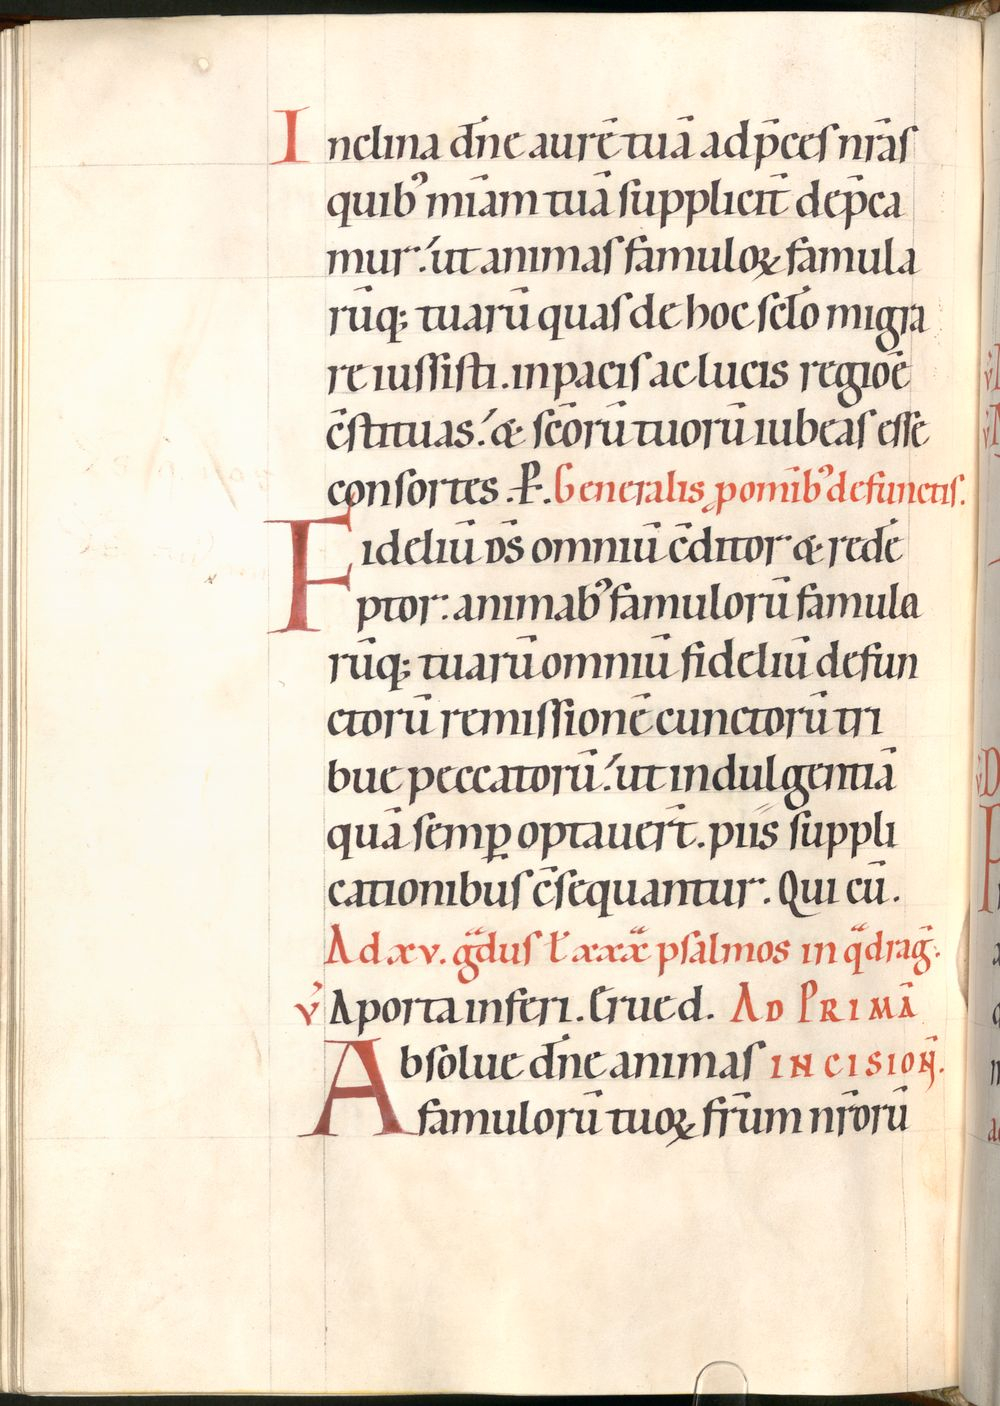 Inclina dn̄e aurē tuā ad p̄ces nr̄as
quibꝰ mīam tuā supplicit̄ dep̄ca
mur. ut animas famuloꝝ famula
rūq; tuarū quas de hoc sc̄lo migra
re iussisti. in pacis ac lucis regioē
c̄stituas. & sc̄orū tuorū iubeas esse
consortes. P̄. Generalis ꝓ om̄ibꝰ defunctis.
Fideliū ds̄ omniū c̄ditor & redē
ptor: animabꝰ famulorū famula
rūq; tuarū omniū fideliū defun
ctorū remissionē cunctorū tri
bue peccatorū. ut indulgentiā
quā semꝑ optauer̄t. piis suppli
cationibus c̄sequantur. Qui cū.
Ad xv. gͣdus ł xxxͣ psalmos in qͣdrag̃.
v̓ A porta inferi. Erue d. AD PRIMĀ
Absolue dn̄e animas INCISION̄.
famulorū tuoꝝ fr̄um nr̄orū